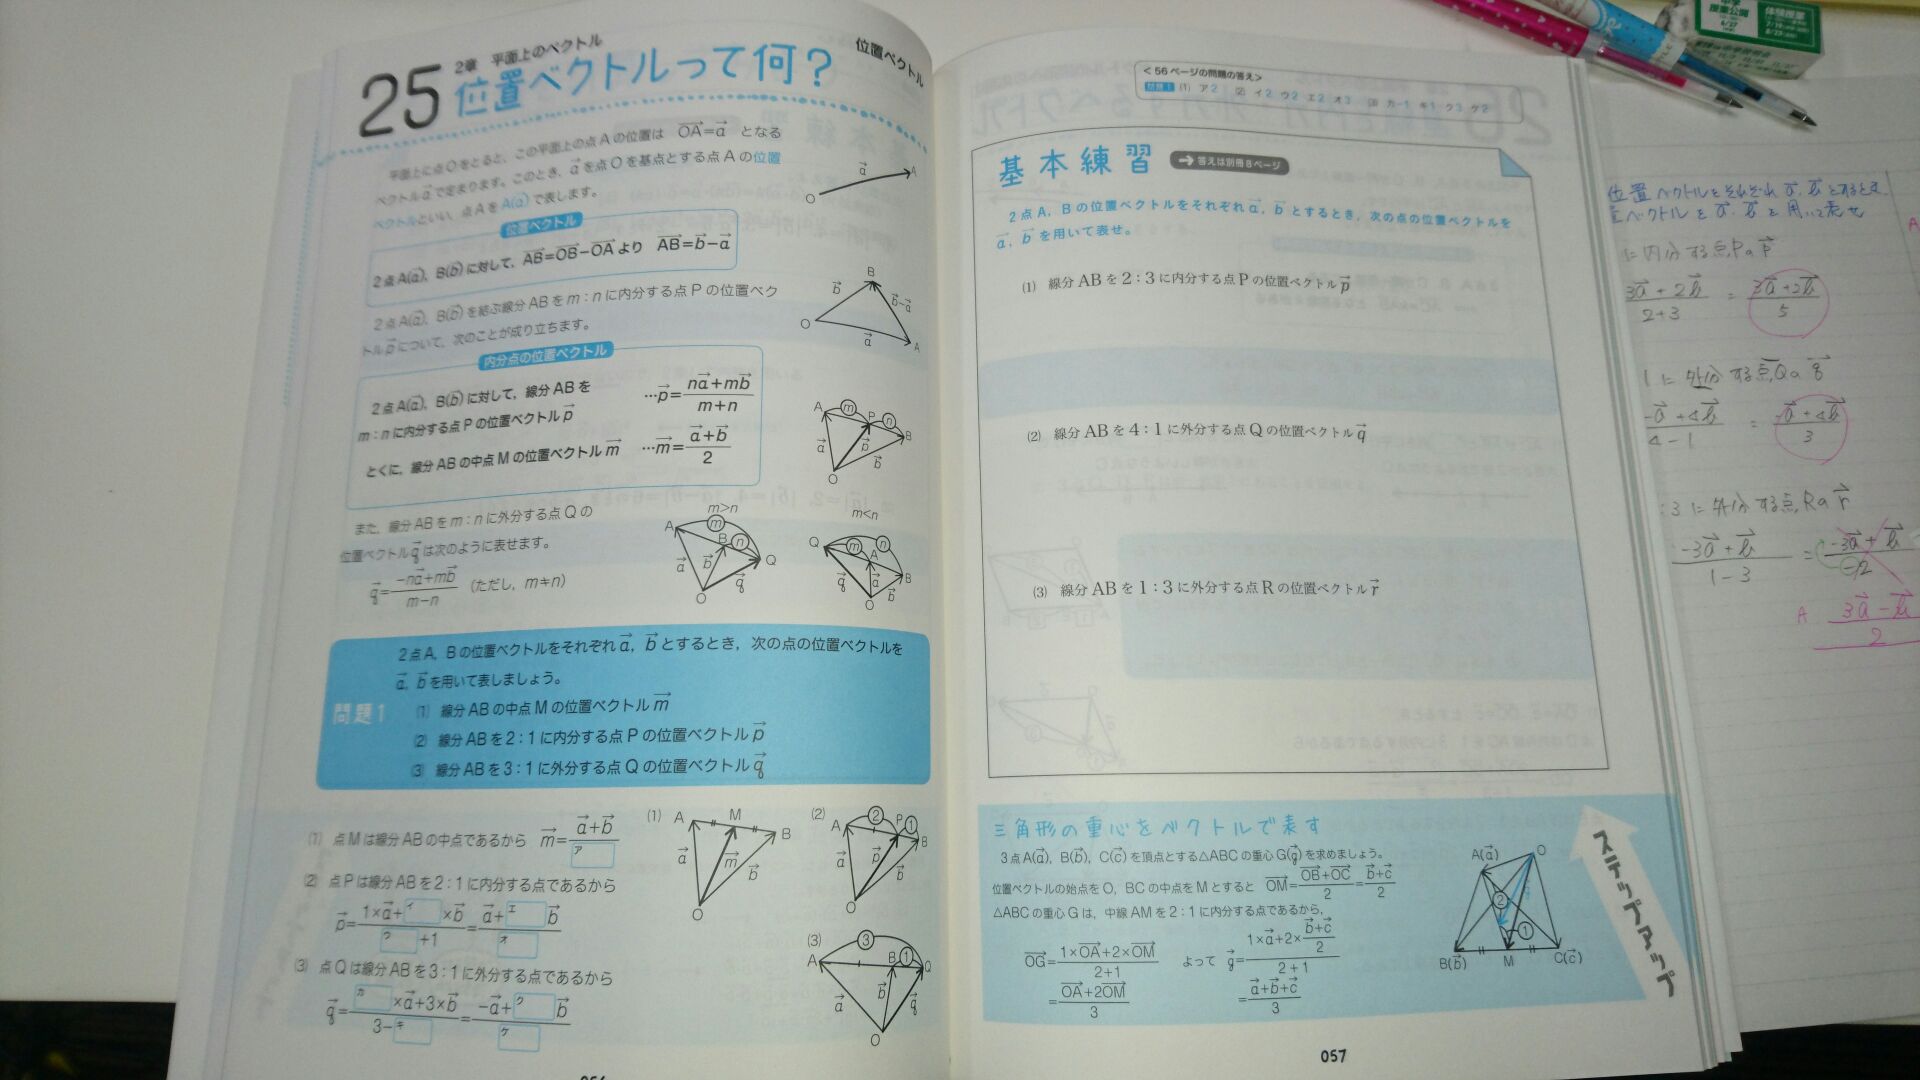 2章 平面上のベクトル
25 位置ベクトルって何?
位置ベクトル
平面上に点Oをとると、この平面上の点Aの位置は OA=a となる
ベクトルaで定まります。このとき、aを点Oを基点とする点Aの位置
ベクトルといい、点AをA(a)で表します。
位置ベクトル
2点A(a), B(b)に対して、AB=OB−OAより AB=b−a
2点A(a), B(b)を結ぶ線分ABをm:nに内分する点Pの位置ベク
トルpについて、次のことが成り立ちます。
内分点の位置ベクトル
2点A(a), B(b)に対して、線分ABを
m:nに内分する点Pの位置ベクトルp …p=(na+mb)/(m+n)
とくに、線分ABの中点Mの位置ベクトルm …m=(a+b)/2
また、線分ABをm:nに外分する点Qの
位置ベクトルqは次のように表せます。
q=(−na+mb)/(m−n) (ただし, m≠n)
m>n
m<n
問題1
2点A, Bの位置ベクトルをそれぞれa, bとするとき、次の点の位置ベクトルを
a, bを用いて表しましょう。
(1) 線分ABの中点Mの位置ベクトルm
(2) 線分ABを2:1に内分する点Pの位置ベクトルp
(3) 線分ABを3:1に外分する点Qの位置ベクトルq
(1) 点Mは線分ABの中点であるから m=(a+b)/ア
(2) 点Pは線分ABを2:1に内分する点であるから
p=(1×a+イ×b)/(ウ+1)=(a+エb)/オ
(3) 点Qは線分ABを3:1に外分する点であるから
q=(カ×a+3×b)/(3−キ)=(−a+クb)/ケ
<56ページの問題の答え>
問題1 (1) ア2 (2) イ2 ウ2 エ2 オ3 (3) カ−1 キ1 ク3 ケ2
基本練習 → 答えは別冊8ページ
2点A, Bの位置ベクトルをそれぞれa, bとするとき、次の点の位置ベクトルを
a, bを用いて表せ。
(1) 線分ABを2:3に内分する点Pの位置ベクトルp
(2) 線分ABを4:1に外分する点Qの位置ベクトルq
(3) 線分ABを1:3に外分する点Rの位置ベクトルr
三角形の重心をベクトルで表す
3点A(a), B(b), C(c)を頂点とする△ABCの重心G(g)を求めましょう。
位置ベクトルの始点をO, BCの中点をMとすると OM=(OB+OC)/2=(b+c)/2
△ABCの重心Gは、中線AMを2:1に内分する点であるから、
OG=(1×OA+2×OM)/(2+1) よって g=(1×a+2×(b+c)/2)/(2+1)
=(OA+2OM)/3 =(a+b+c)/3
A(a) O
B(b) M C(c)
ステップアップ
057
位置ベクトルをそれぞれa, bとするとき、
ベクトルをa, bを用いて表せ
に内分する点Pのp
(3a+2b)/(2+3) = (3a+2b)/5
1に外分する点Qのq
(−a+4b)/(4−1) = (−a+4b)/3
:3に外分する点Rのr
(−3a+b)/(1−3) = (−3a+b)/−2
A (3a−b)/2
授業公開
体験授業